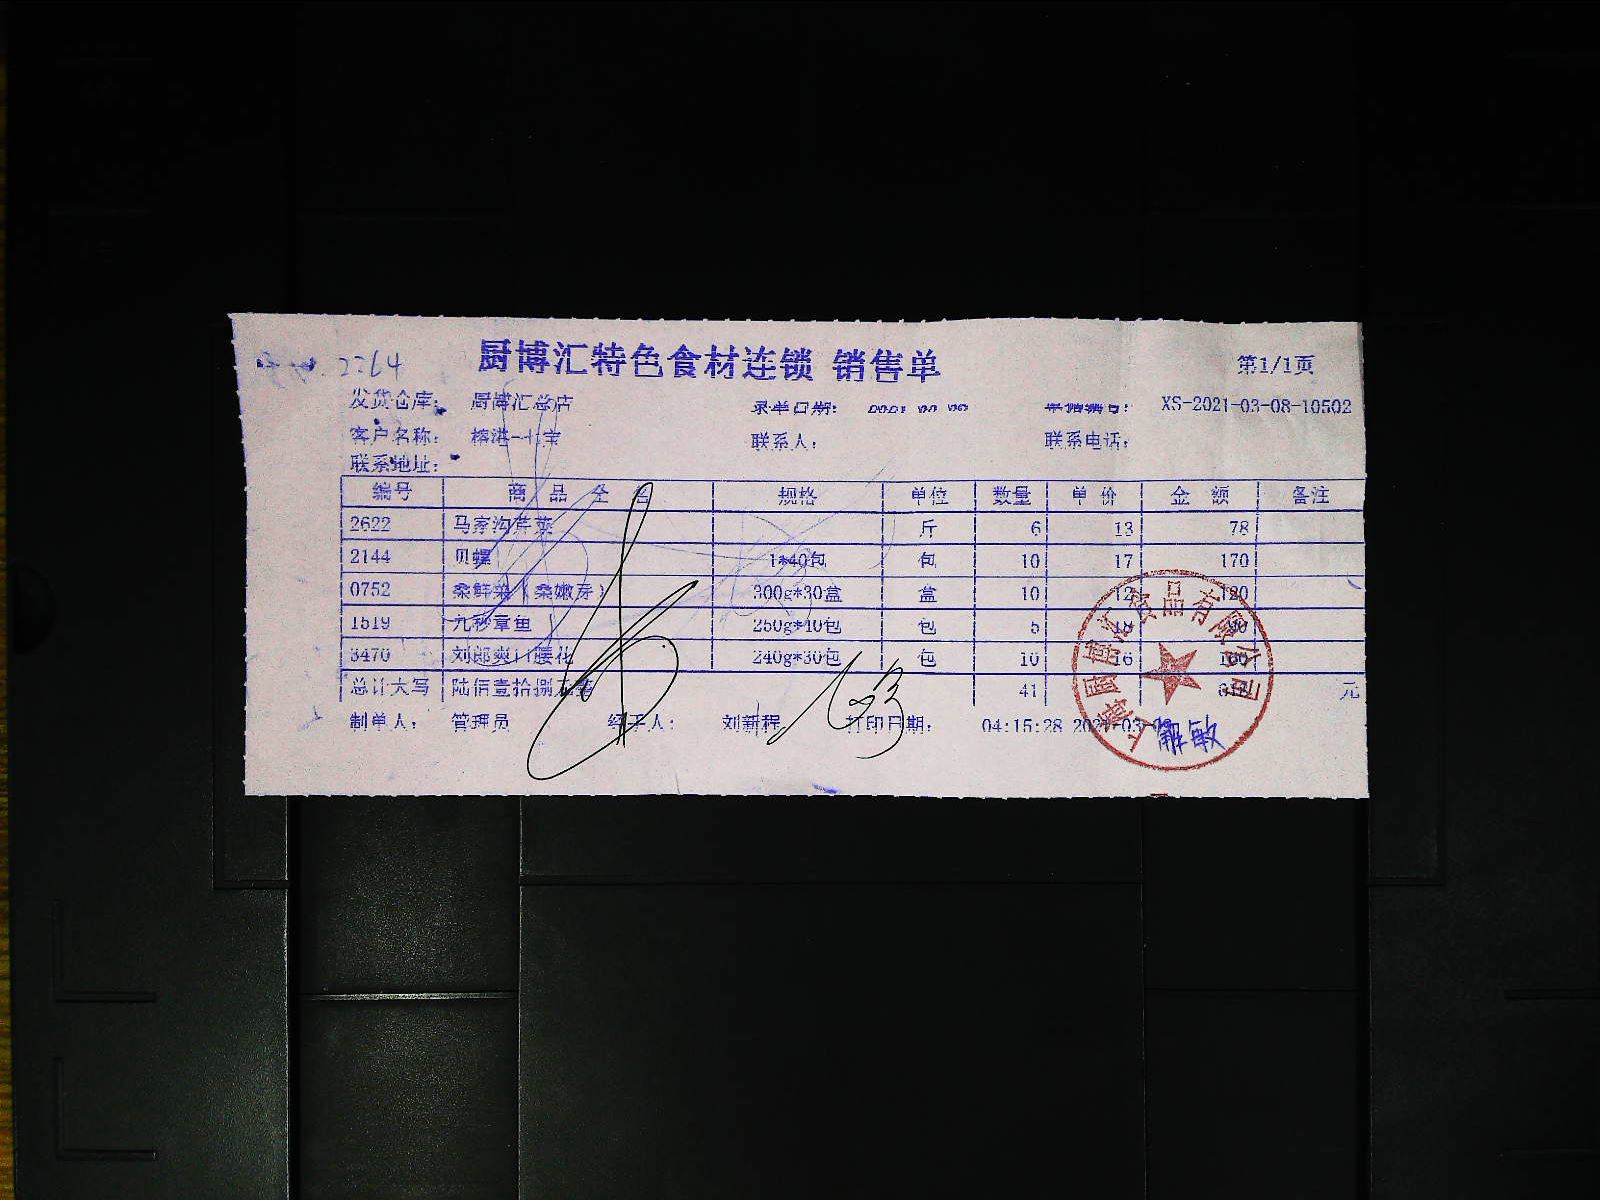 2264
厨博汇特色食材连锁 销售单 第1/1页
发货仓库： 厨博汇总店 录单日期： 单据编号： XS-2021-03-08-10502
客户名称： 榕港-七宝 联系人： 联系电话：
联系地址：
编号 商 品 全 名 规格 单位 数量 单 价 金 额 备注
2622 马家沟芹菜 斤 6 13 78
2144 贝螺 1*40包 包 10 17 170
0752 桑鲜菜（桑嫩芽） 300g*30盒 盒 10 12 120
1519 九秒章鱼 250g*40包 包 5
3470 刘郎爽口腰花 240g*30包 包 10 16 160
总计大写 陆佰壹拾捌元整 41 618 元
制单人： 管理员 经手人： 刘新程 打印日期： 04:15:28 2021-03-
上海厨博汇食品有限公司
解敏